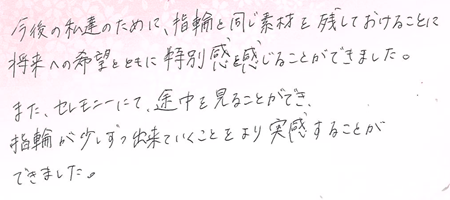 今後の私達のために、指輪と同じ素材を残しておけることに
将来への希望とともに特別感を感じることができました。
また、セレモニーにて、途中を見ることができ、
指輪が少しずつ出来ていくことをより実感することが
できました。